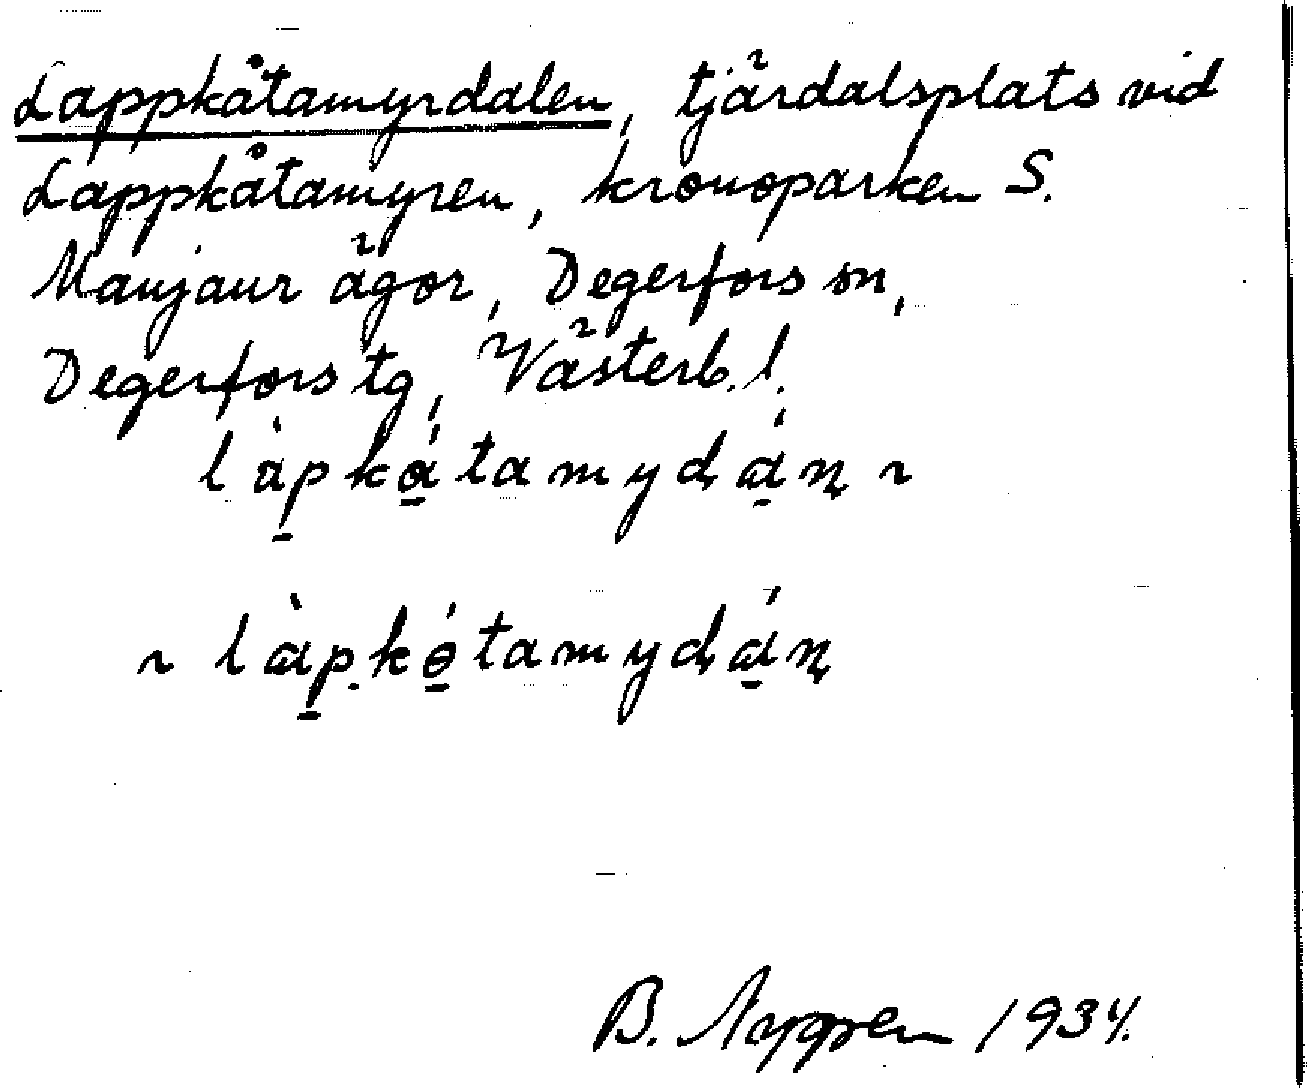 Lappkåtamyrdalen, tjärdalsplats vid
Lappkåtamyren, kronoparken S.
Maujaur ägor, Degerfors sn,
Degerfors tg, Västerb. l.
làpkátamyɖáɳ ~
~ làpkǿtamyɖáɳ
B. 1934.